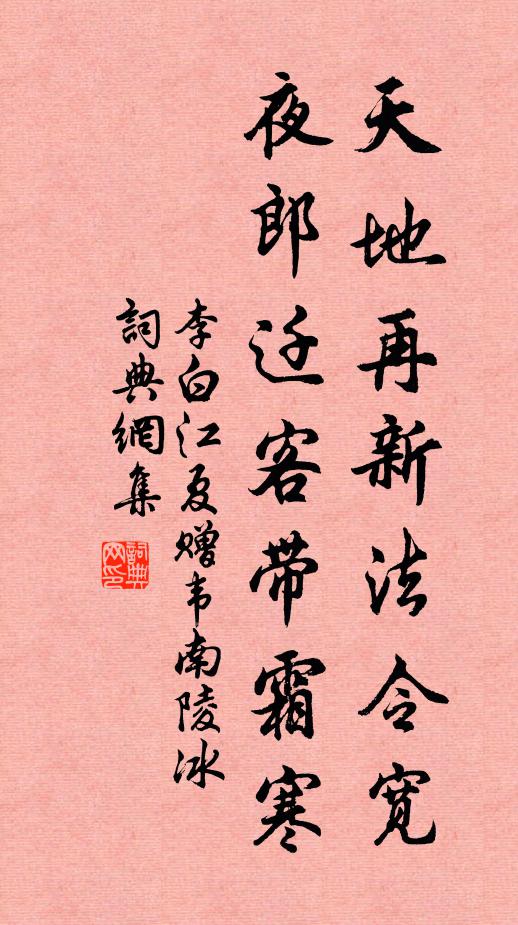 天地再新法令寛
夜郎迁客带霜寒
李白江夏赠韦南陵冰
詞典網集
詞典网印